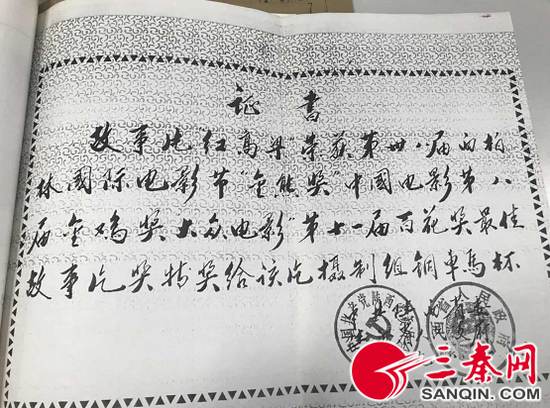 证 书
故事片"红高粱"荣获第卅八届西柏
林国际电影节"金熊奖"中国电影第八
届金鸡奖大众电影"第十一届百花奖最佳
故事片奖特奖给该片摄制组铜車馬杯
三秦网
SANQIN.COM